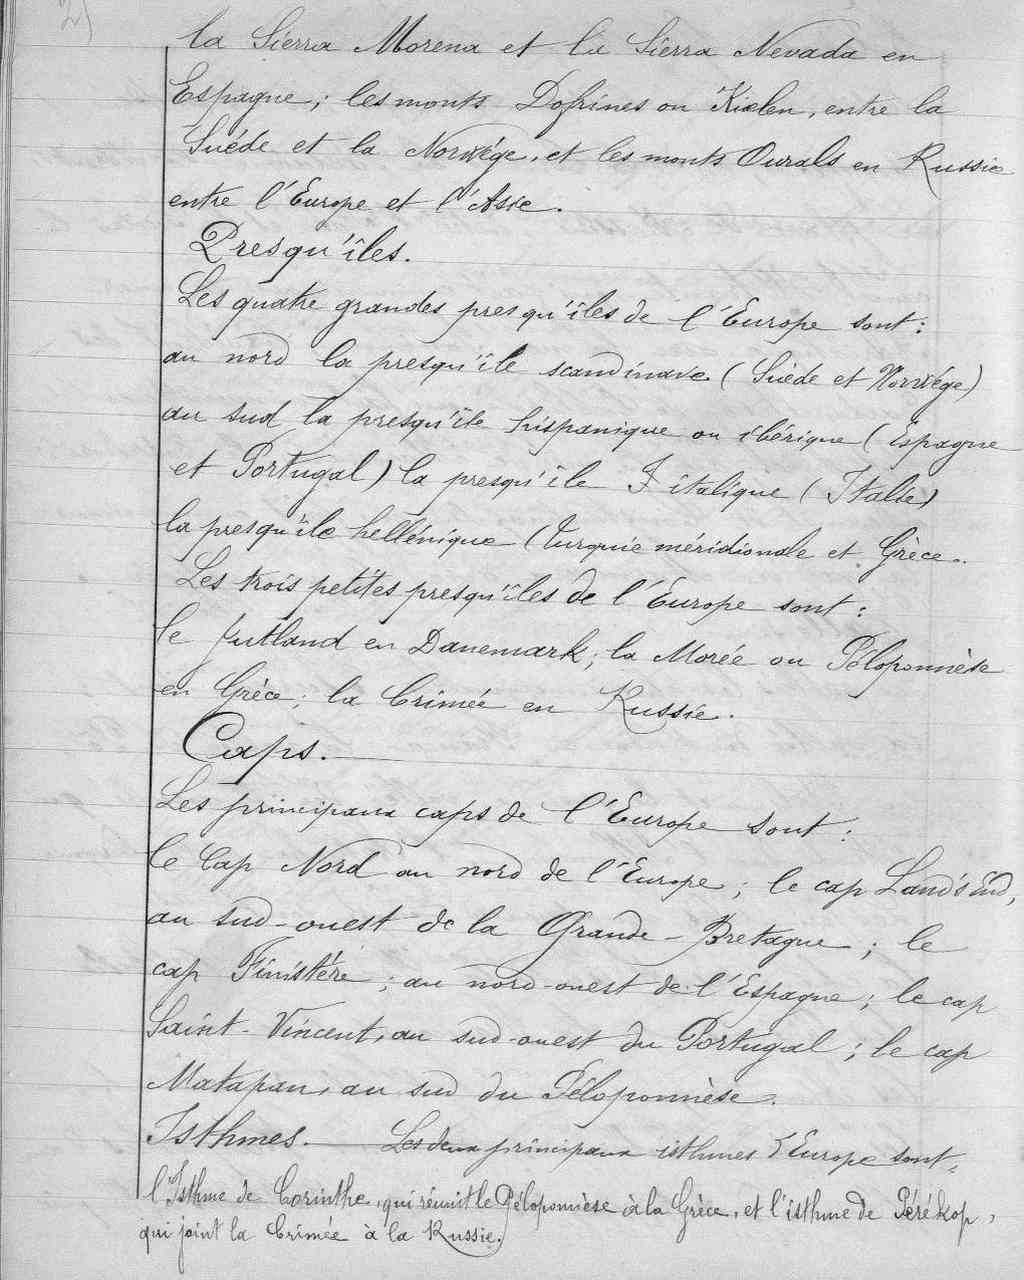 la Sierra Morena et la Sierra Nevada en
Espagne; les monts Dofrines ou Kiœlen, entre la
Suéde et la Norwége, et les monts Ourals en Russie
entre l'Europe et l'Asie.
Presqu'îles.
Les quatre grandes presqu'îles de l'Europe sont:
au nord la presqu'île scandinave (Suède et Norwége)
au sud la presqu'île hispanique ou ibérique (Espagne
et Portugal) la presqu'île I italique (Italie)
la presqu'île hellénique (Turquie méridionale et Grèce.
Les trois petites presqu'îles de l'Europe sont:
le Jutland en Danemark; la Morée ou Péloponnèse
en Grèce; la Crimée en Russie.
Caps.
Les principaux caps de l'Europe sont:
le Cap Nord au nord de l'Europe; le cap Land's End,
au sud-ouest de la Grande-Bretagne; le
cap Finistére; au nord-ouest de l'Espagne; le cap
Saint-Vincent, au sud-ouest du Portugal; le cap
Matapan, au sud du Péloponnèse.
Isthmes. Les deux principaux isthmes d'Europe sont:
l'Isthme de Corinthe, qui réunit le Péloponnèse à la Grèce, et l'isthme de Pérékop,
qui joint la Crimée à la Russie.